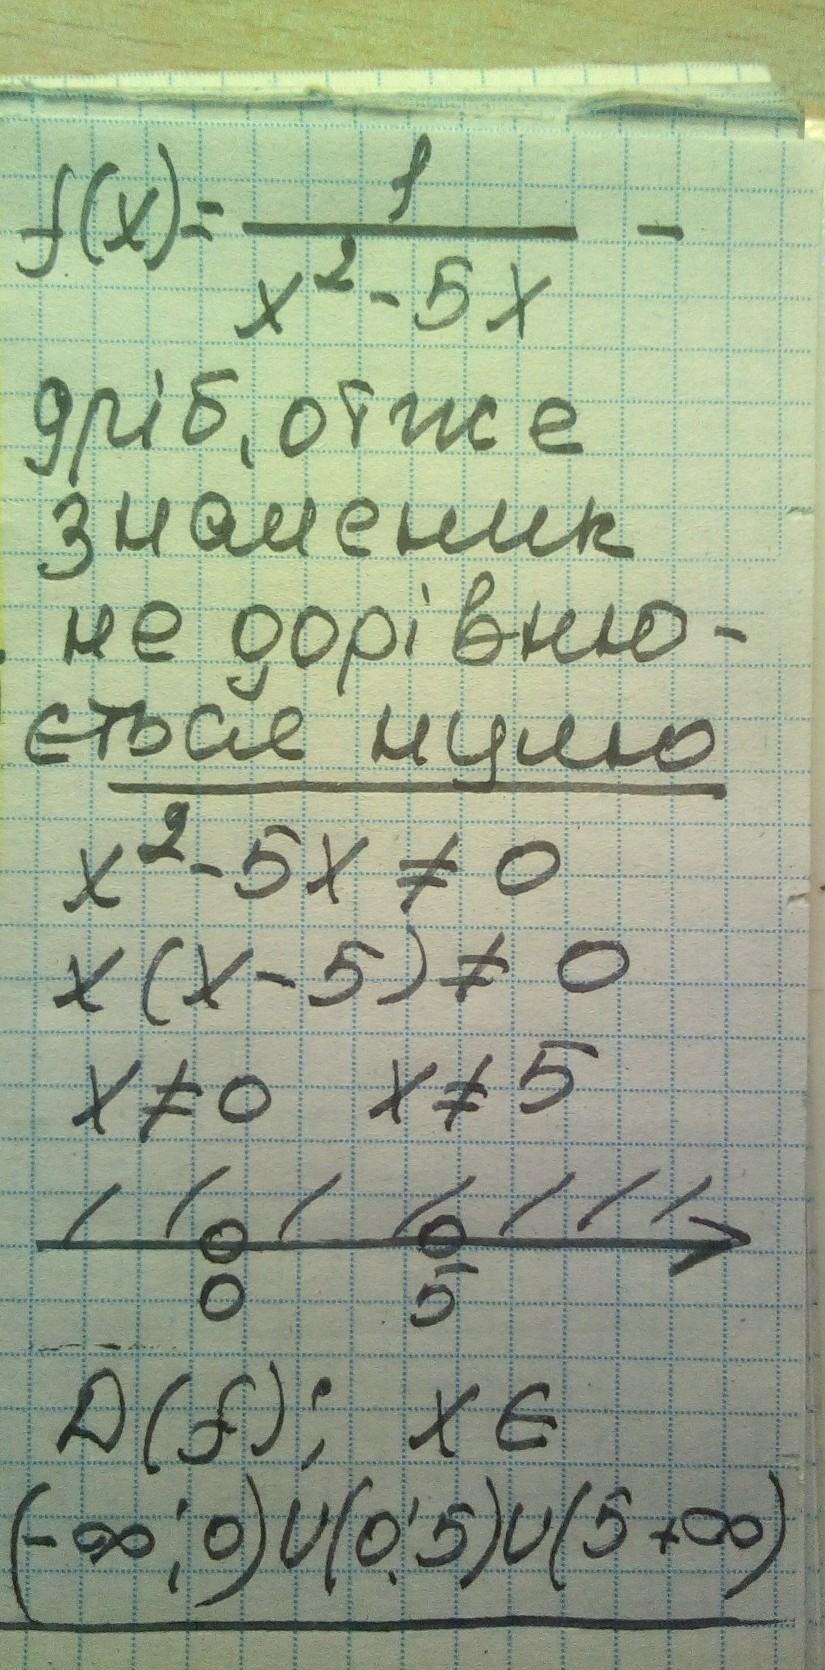 f(x) = 1 / (x² - 5x) -
дріб, отже
знаменик
не дорівню-
ється нулю
x² - 5x ≠ 0
x(x - 5) ≠ 0
x ≠ 0 x ≠ 5
0 5
D(f): x ∈
(-∞; 0) ∪ (0; 5) ∪ (5 +∞)